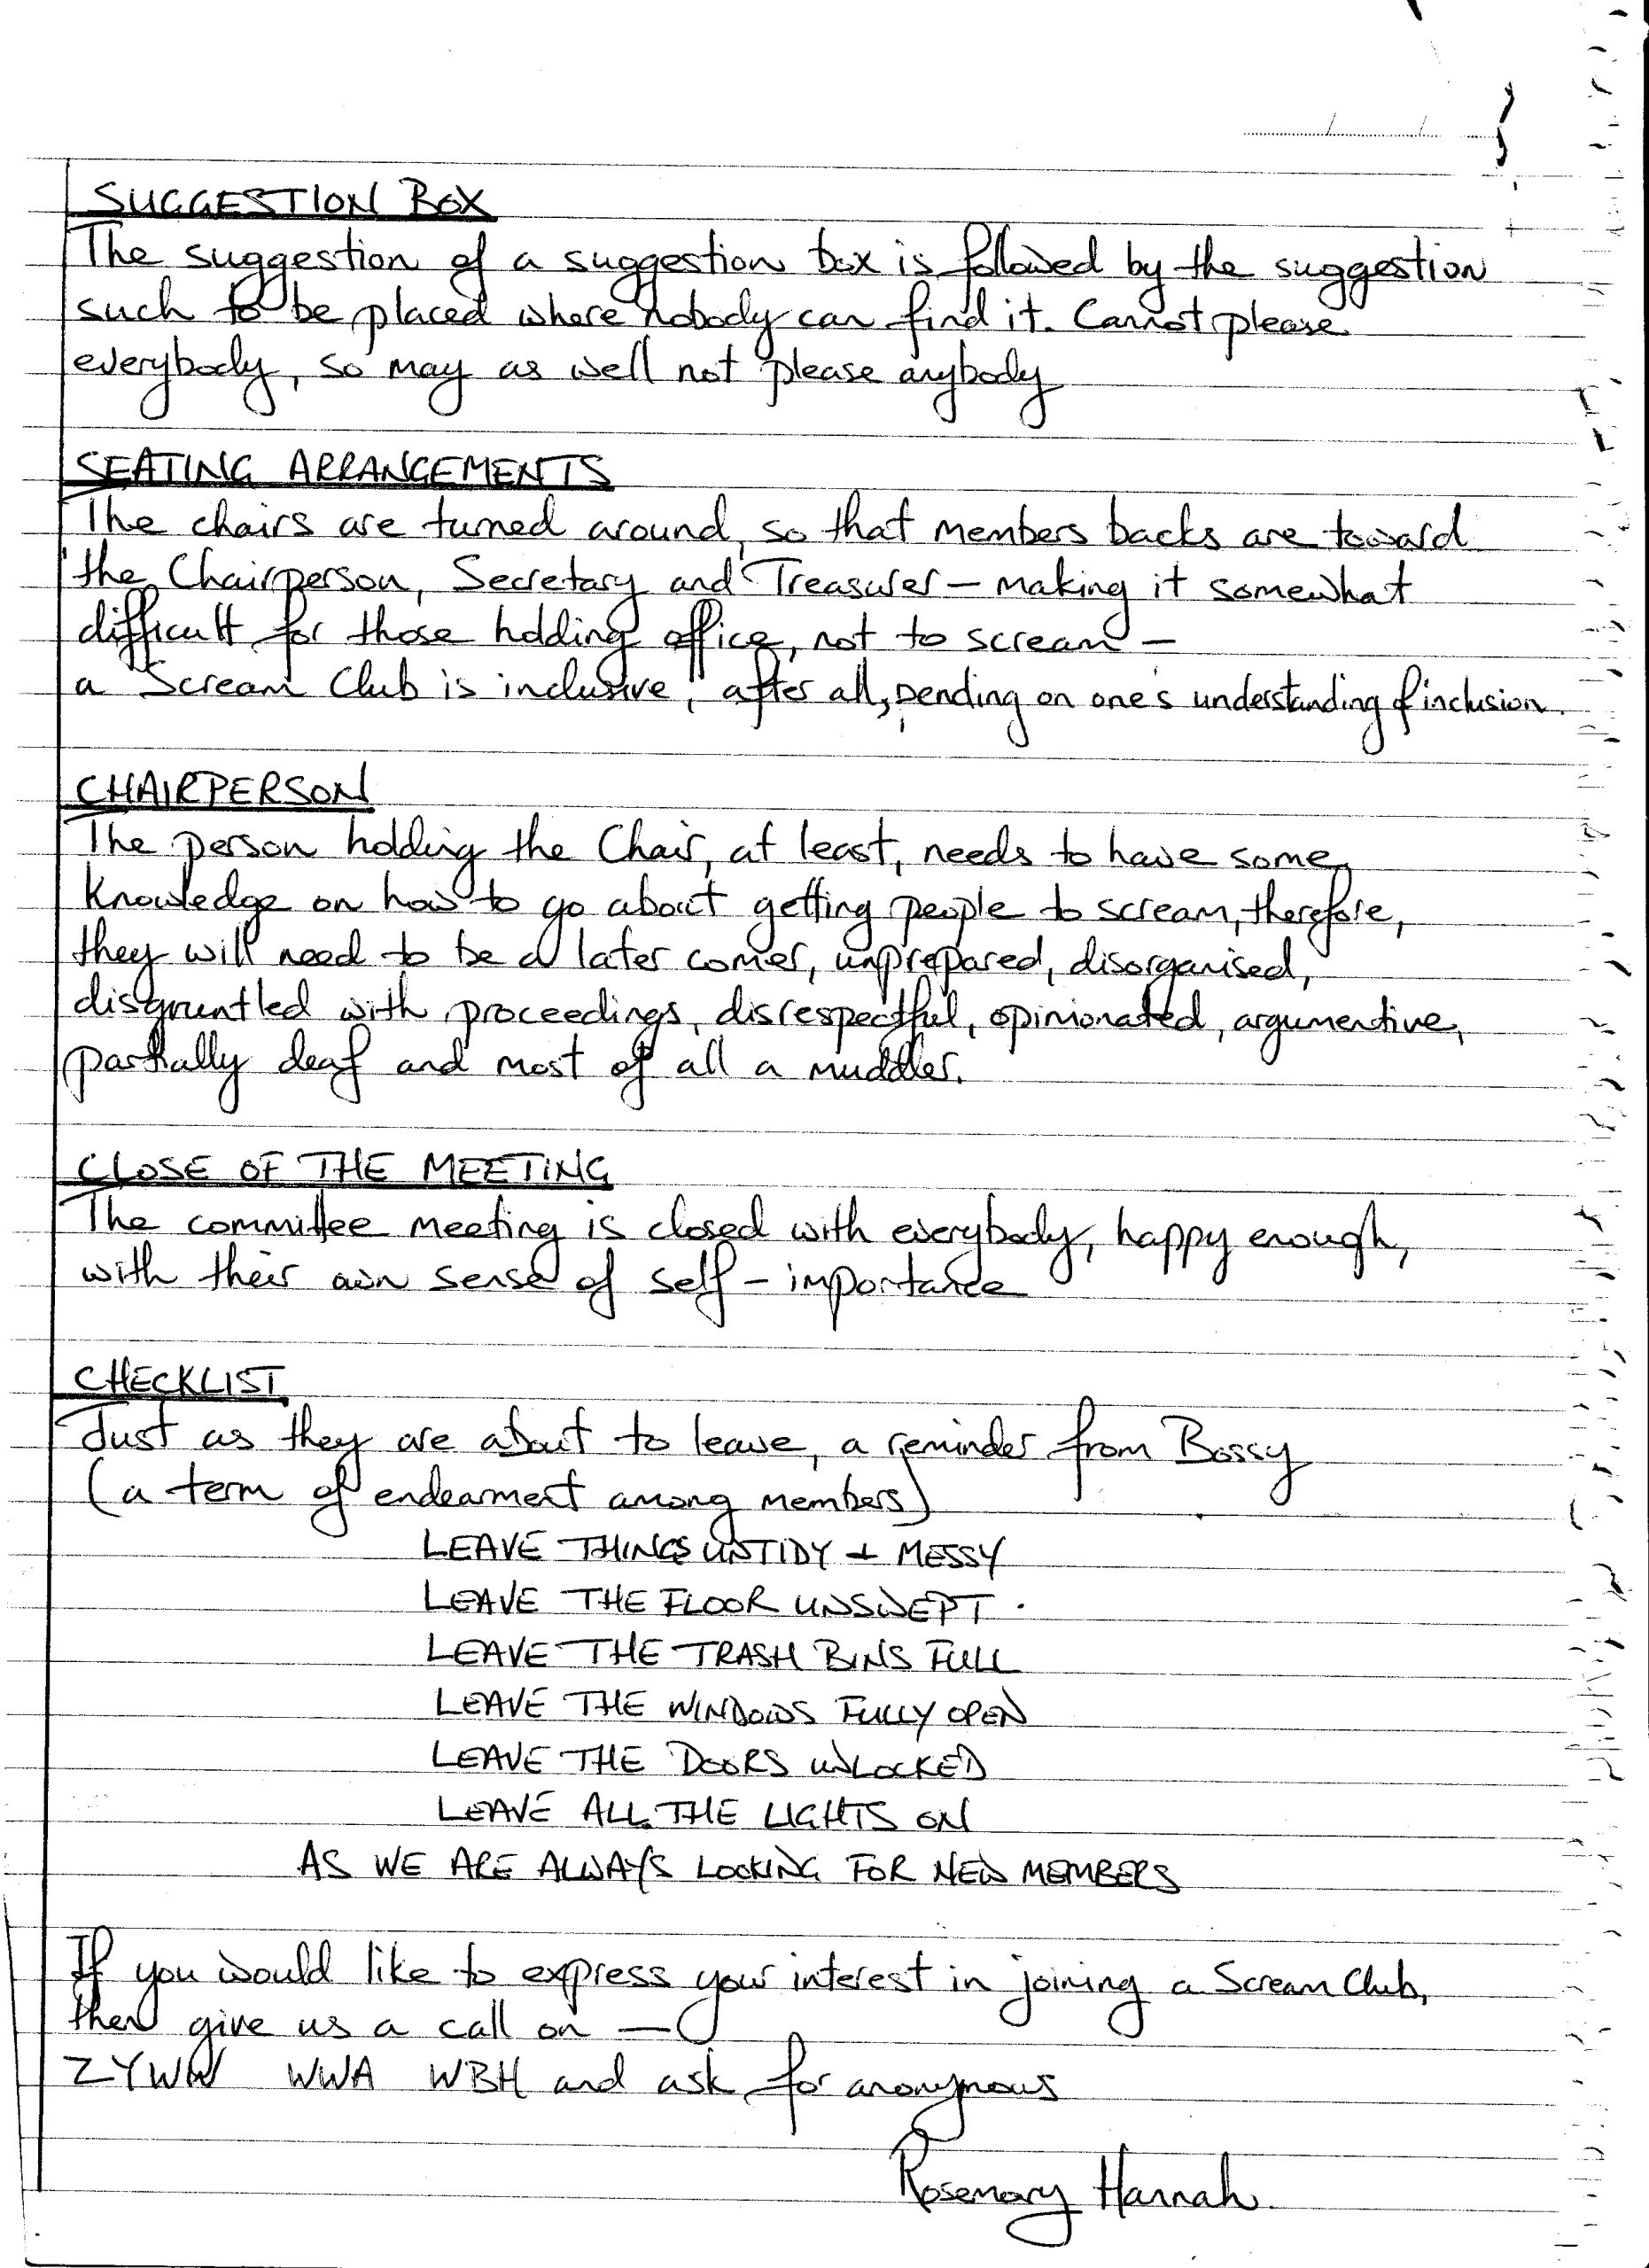 SUGGESTION BOX
The suggestion of a suggestion box is followed by the suggestion
such to be placed where nobody can find it. Cannot please
everybody, so may as well not please anybody
SEATING ARRANGEMENTS
The chairs are turned around, so that members backs are toward
the Chairperson, Secretary and Treasurer - making it somewhat
difficult for those holding office, not to scream -
a Scream Club is inclusive, after all, pending on one's understanding of inclusion.
CHAIRPERSON
The person holding the Chair, at least, needs to have some
knowledge on how to go about getting people to scream, therefore,
they will need to be a later comer, unprepared, disorganised,
disgruntled with proceedings, disrespectful, opinionated, argumentive,
partially deaf and most of all a muddler.
CLOSE OF THE MEETING
The committee meeting is closed with everybody, happy enough,
with their own sense of self-importance
CHECKLIST
Just as they are about to leave, a reminder from Bossy
(a term of endearment among members)
LEAVE THINGS UNTIDY + MESSY
LEAVE THE FLOOR UNSWEPT.
LEAVE THE TRASH BINS FULL
LEAVE THE WINDOWS FULLY OPEN
LEAVE THE DOORS UNLOCKED
LEAVE ALL THE LIGHTS ON
AS WE ARE ALWAYS LOOKING FOR NEW MEMBERS
If you would like to express your interest in joining a Scream Club,
then give us a call on —
ZYWW WWA WBH and ask for anonymous
Rosemary Hannah.